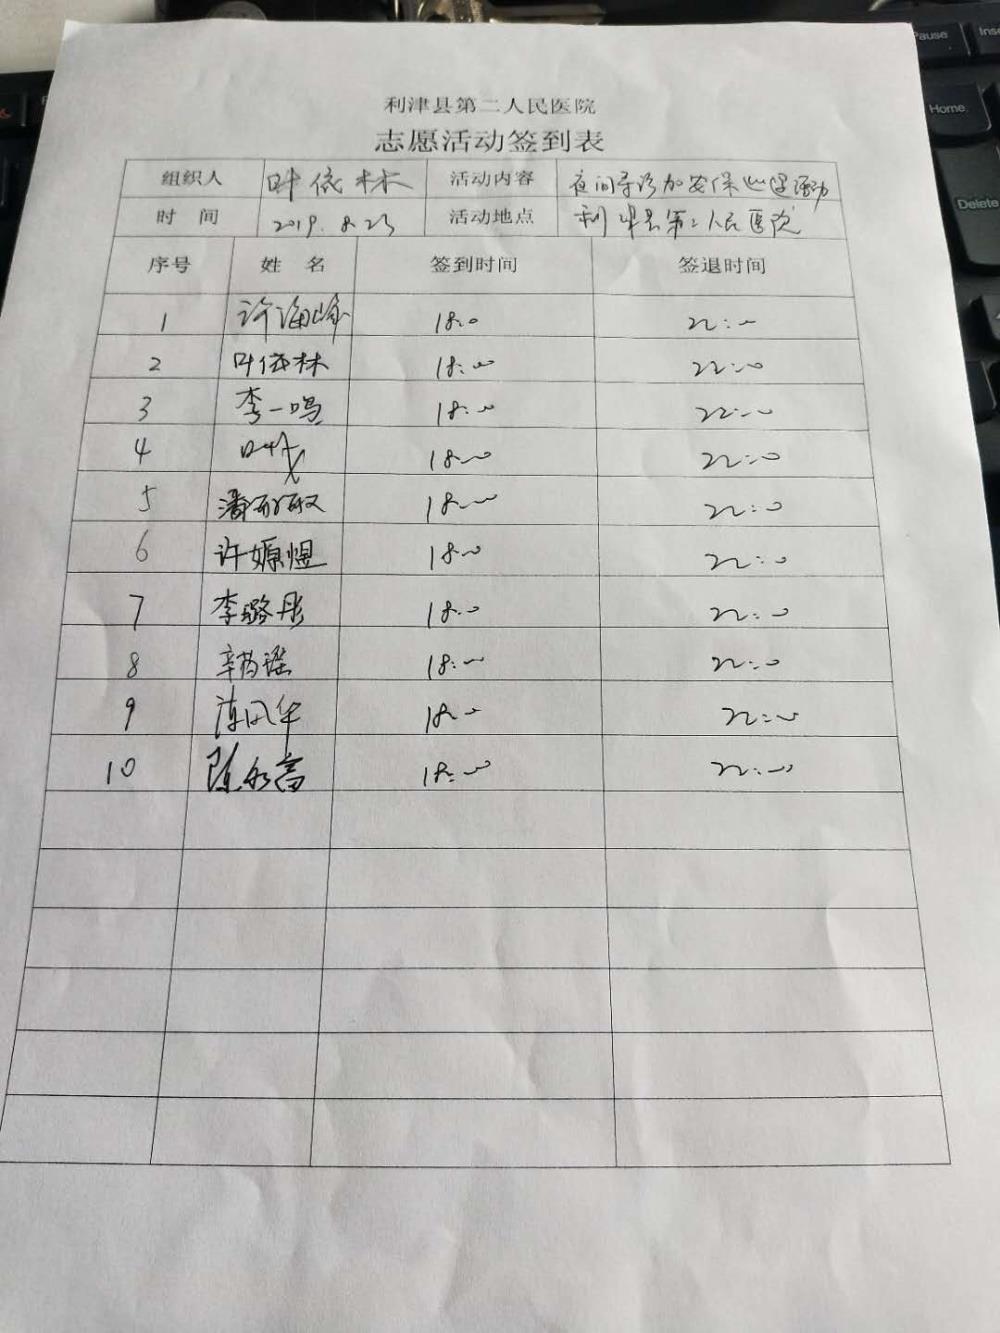 利津县第二人民医院
志愿活动签到表
组织人 叶依林 活动内容 夜间导诊加安保巡逻活动
时 间 2019.8.23 活动地点 利津县第二人民医院
序号 姓 名 签到时间 签退时间
1 许海峰 18:0 22:00
2 叶依林 18:00 22:00
3 李一鸣 18:00 22:00
4 18:00 22:00
5 潘 18:00 22:00
6 许嫄煜 18:00 22:00
7 李璐彤 18:00 22:00
8 18:00 22:00
9 18:00 22:00
10 陈 18:00 22:00
Pause
Home
Delete